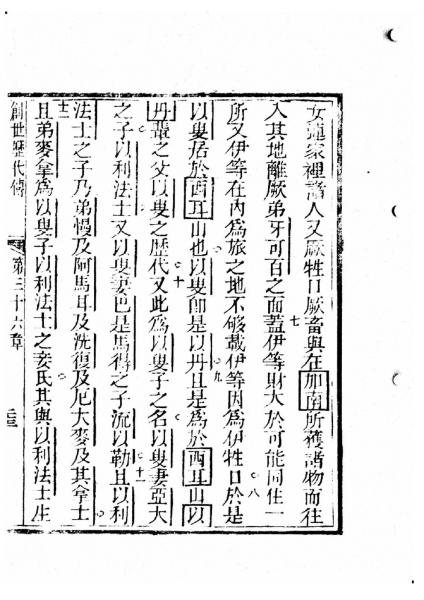 女連家裡諸人又厥牲口厥畜與在加南所獲諸物而往
入其地離厥弟牙可百之面蓋伊等財大於可能同住一
七
所又伊等在內爲旅之地不够載伊等因爲伊牲口於是
八
以叟居於西耳山也以叟卽是以丹且是爲於西耳山以
九
丹輩之父以叟之歷代又此爲以叟子之名以叟妻亞大
十
之子以利法士又以叟妻巴是馬得之子流以勒且以利
十一
法士之子乃弟慢及阿馬耳及洗復及厄大麥及其拿士
十二
且弟麥拿爲以叟子以利法士之妾氏其與以利法士生
創世歷代傳
第三十六章